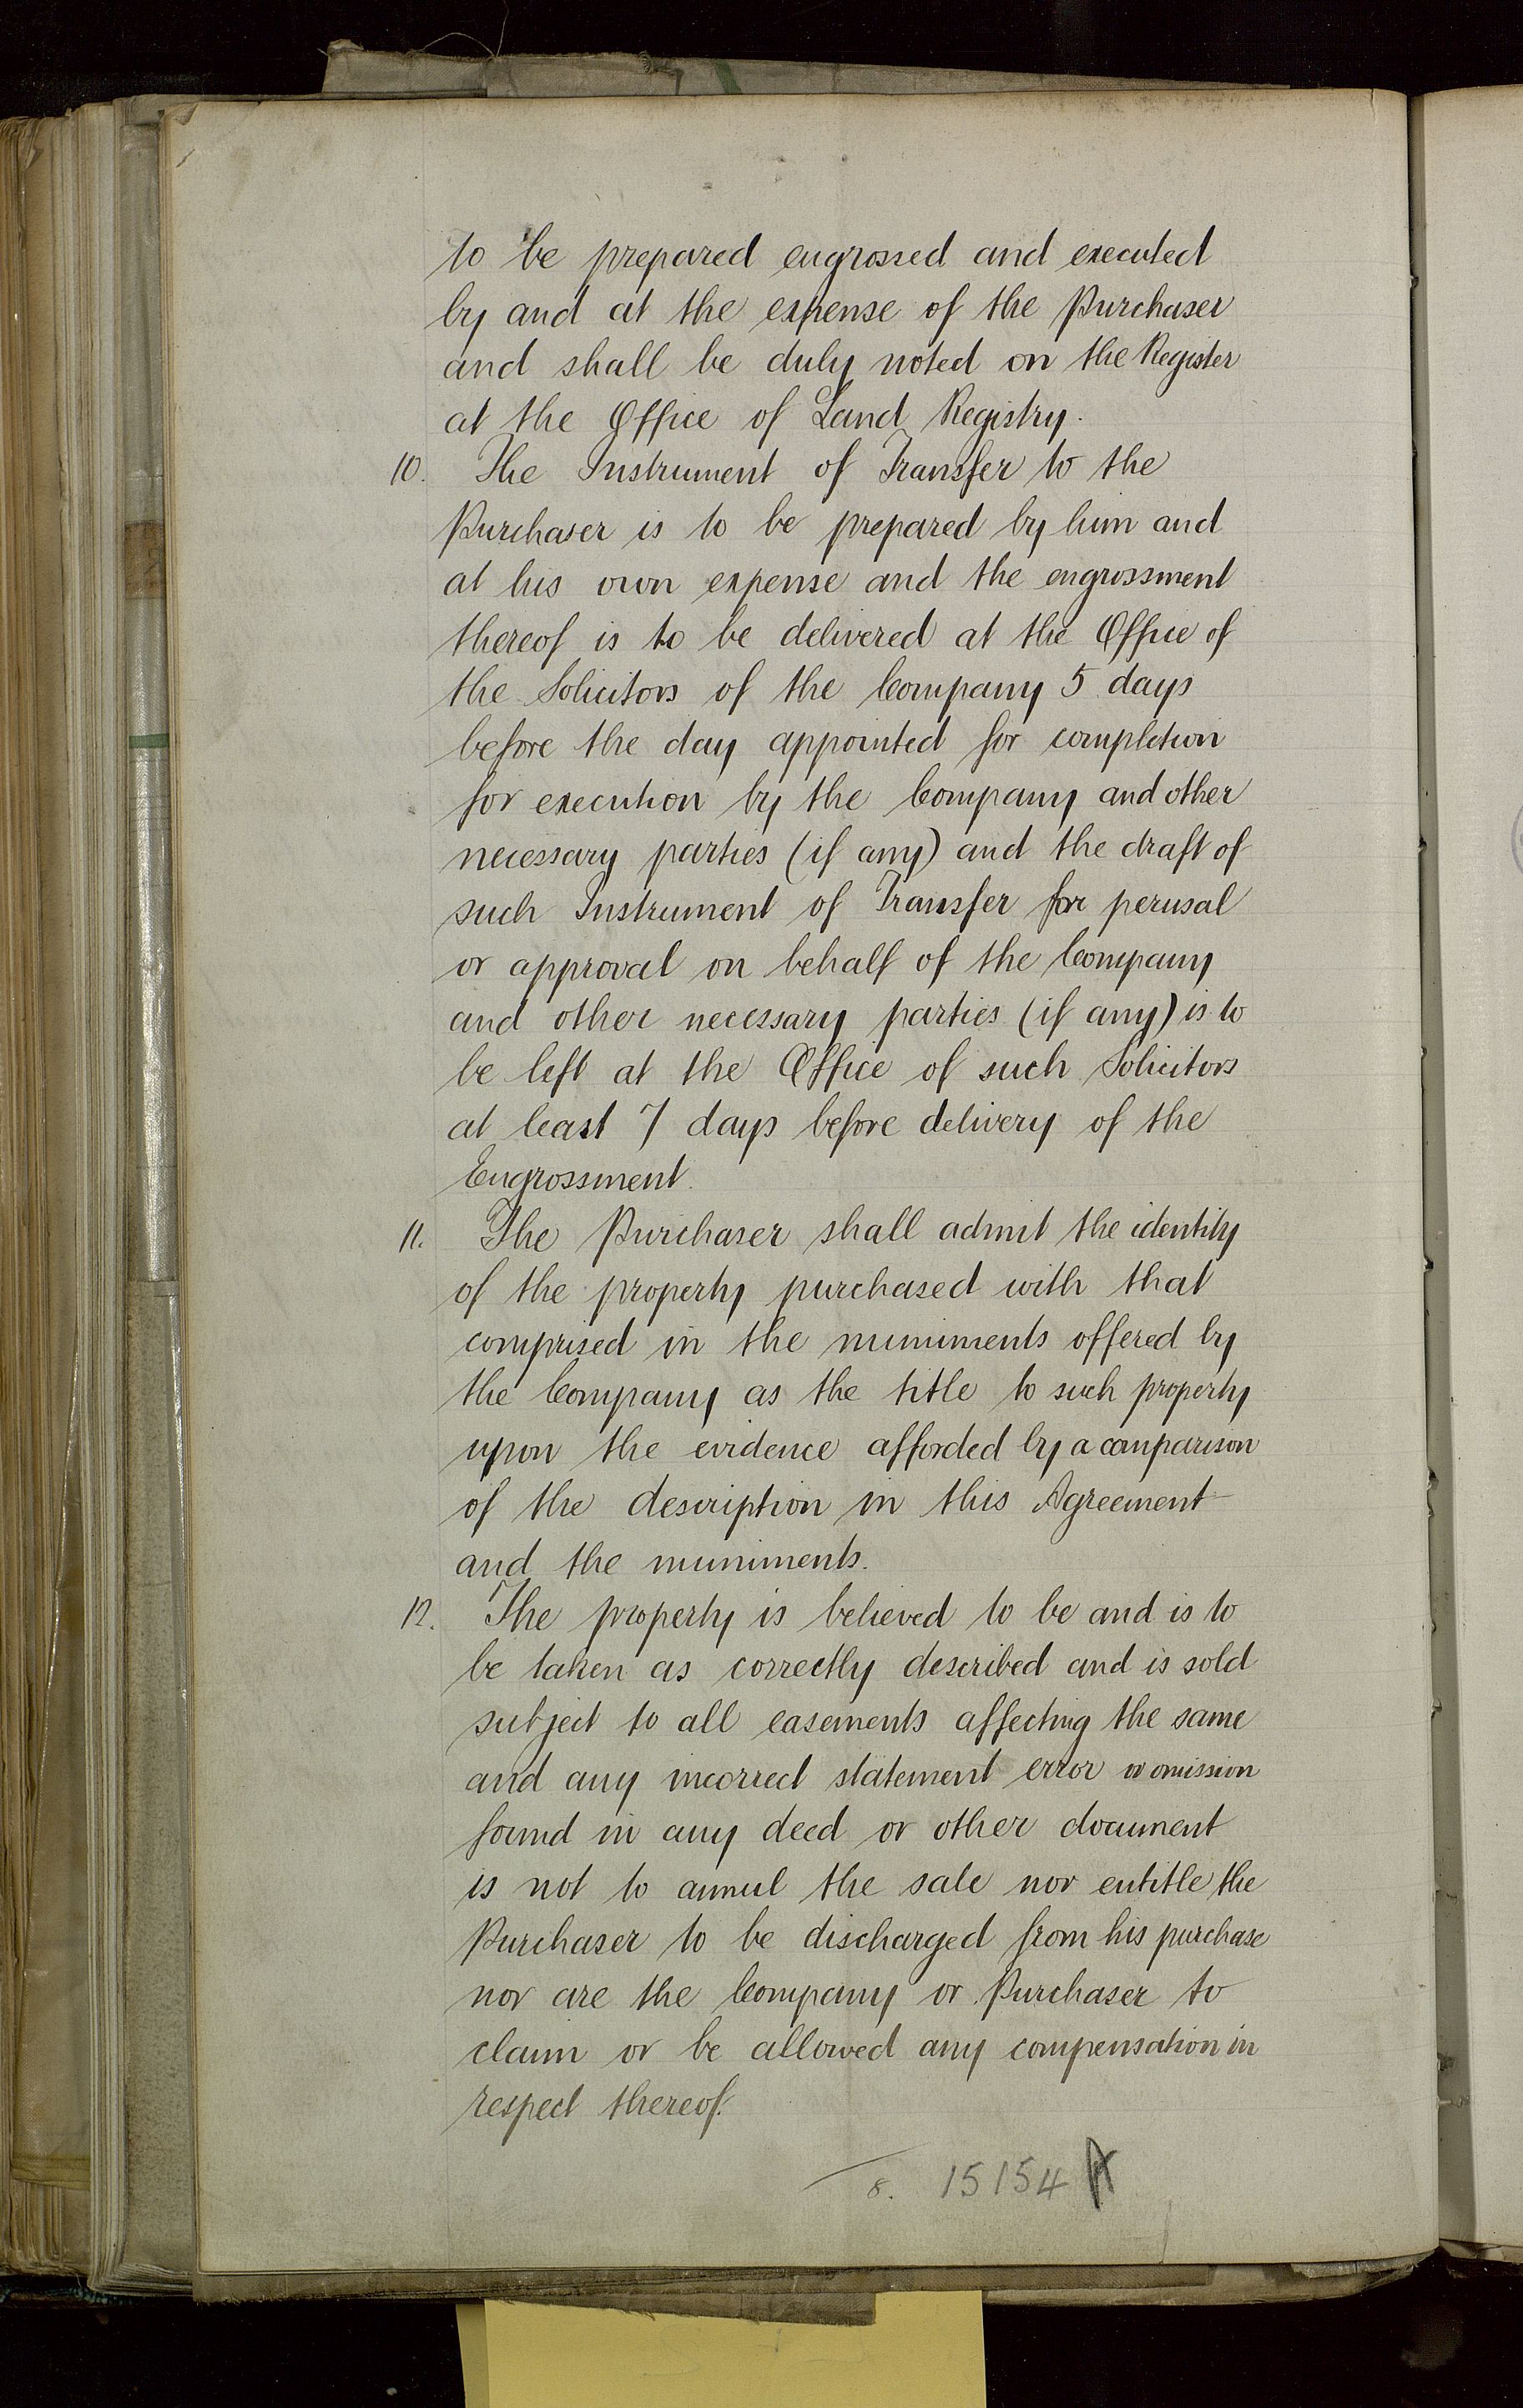 to be prepared engrossed and executed
by and at the expense of the Purchaser
and shall be duly noted on the Register
at the Office of Land Registry.
10. The Instrument of Transfer to the
Purchaser is to be prepared by him and
at his own expense and the engrossment
thereof is to be delivered at the Office of
the Solicitors of the Company 5 days
before the day appointed for completion
for execution by the Company and other
necessary parties (if any) and the draft of
such Instrument of Transfer for perusal
or approval on behalf of the Company
and other necessary parties (if any) is to
be left at the Office of such Solicitors
at least 7 days before delivery of the
Engrossment.
11. The Purchaser shall admit the identity
of the property purchased with that
comprised in the muniments offered by
the Company as the title to such property
upon the evidence afforded by a comparison
of the description in this Agreement
and the muniments.
12. The property is believed to be and is to
be taken as correctly described and is sold
subject to all easements affecting the same
and any incorrect statement error or omission
found in any deed or other document
is not to annul the sale nor entitle the
Purchaser to be discharged from his purchase
nor are the Company or Purchaser to
claim or be allowed any compensation in
respect thereof.
8. 15154 A